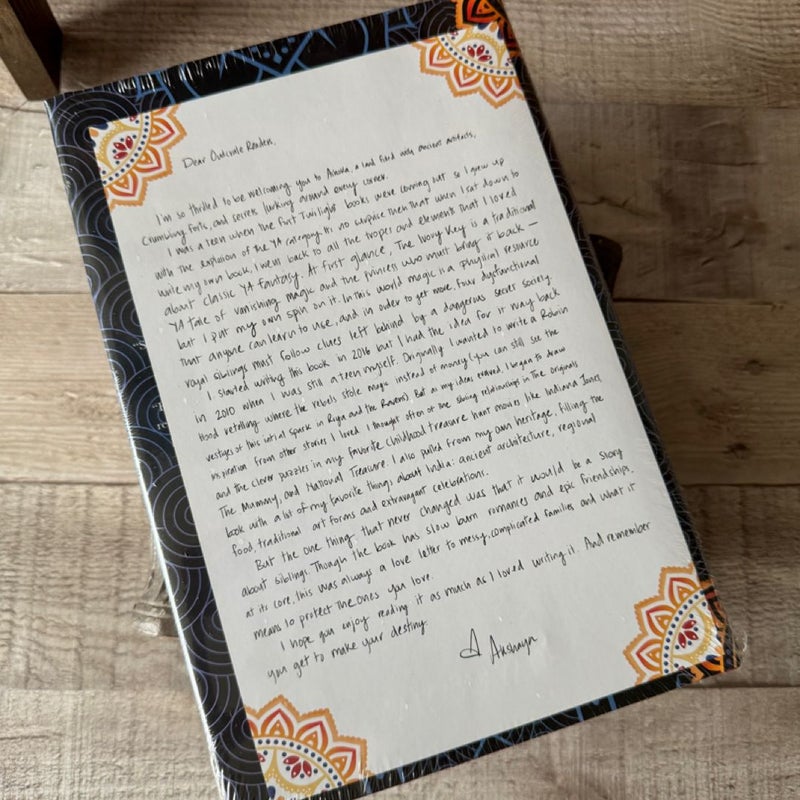 Dear OwlCrate Readers,
I'm so thrilled to be welcoming you to Ashoka, a land filled with ancient artifacts,
crumbling forts, and secrets lurking around every corner.
I was a teen when the first Twilight books were coming out so I grew up
with the explosion of the YA category. It's no surprise then that when I sat down to
write my own book, I went back to all the tropes and elements that I loved
about classic YA fantasy. At first glance, The Ivory Key is a traditional
YA tale of vanishing magic and the princess who must bring it back —
but I put my own spin on it. In this world magic is a physical resource
that anyone can learn to use, and in order to get more, four dysfunctional
royal siblings must follow clues left behind by a dangerous secret society.
I started writing this book in 2016 but I had the idea for it way back
in 2010 when I was still a teen myself. Originally I wanted to write a Robin
Hood retelling where the rebels stole magic instead of money (you can still see the
vestiges of this initial spark in Riya and the Ravens). But as my ideas evolved, I began to draw
inspiration from other stories I loved. I thought often of the sibling relationships in The Originals
and the clever puzzles in my favorite childhood treasure hunt movies like Indiana Jones,
The Mummy, and National Treasure. I also pulled from my own heritage, filling the
book with a lot of my favorite things about India: ancient architecture, regional
food, traditional art forms and extravagant celebrations.
But the one thing that never changed was that it would be a story
about siblings. Though the book has slow burn romances and epic friendships,
at its core, this was always a love letter to messy, complicated families and what it
means to protect the ones you love.
I hope you enjoy reading it as much as I loved writing it. And remember
you get to make your destiny.
Akshaya